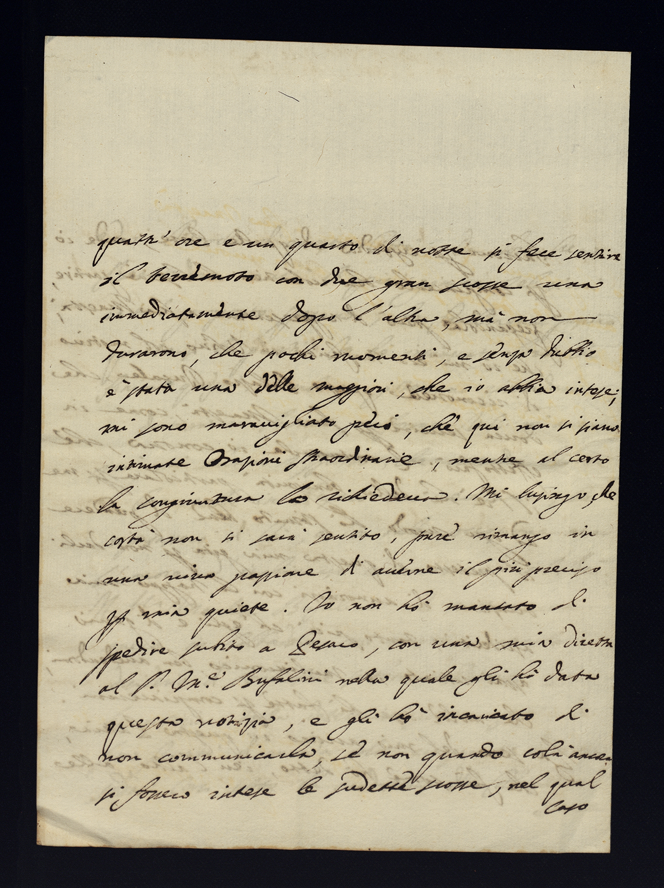 quattr' ore e un quarto di notte si fece sentire
il terremoto con due gran scosse una
immediatamente dopo l'altra, mà non
durarono, che pochi momenti, e senza dubbio
è stata una delle maggiori, che io abbia intese;
mi sono maravigliato però, che qui non si siano
intimate Orazioni straordinarie, mentre al certo
la congiuntura lo richiedeva. Mi lusingo, che
costà non si sarà sentito, pure rimango in
una viva passione di averne il più preciso
mia quiete. Io non hò mancato di
spedire subito a, con una mia diretta
al P. M.º Bufalini nella quale gli hò data
questa notizia, e gli hò incaricato di
non communicarla, se non quando colà ancora
si fossero intese le sudette scosse, nel qual
caso